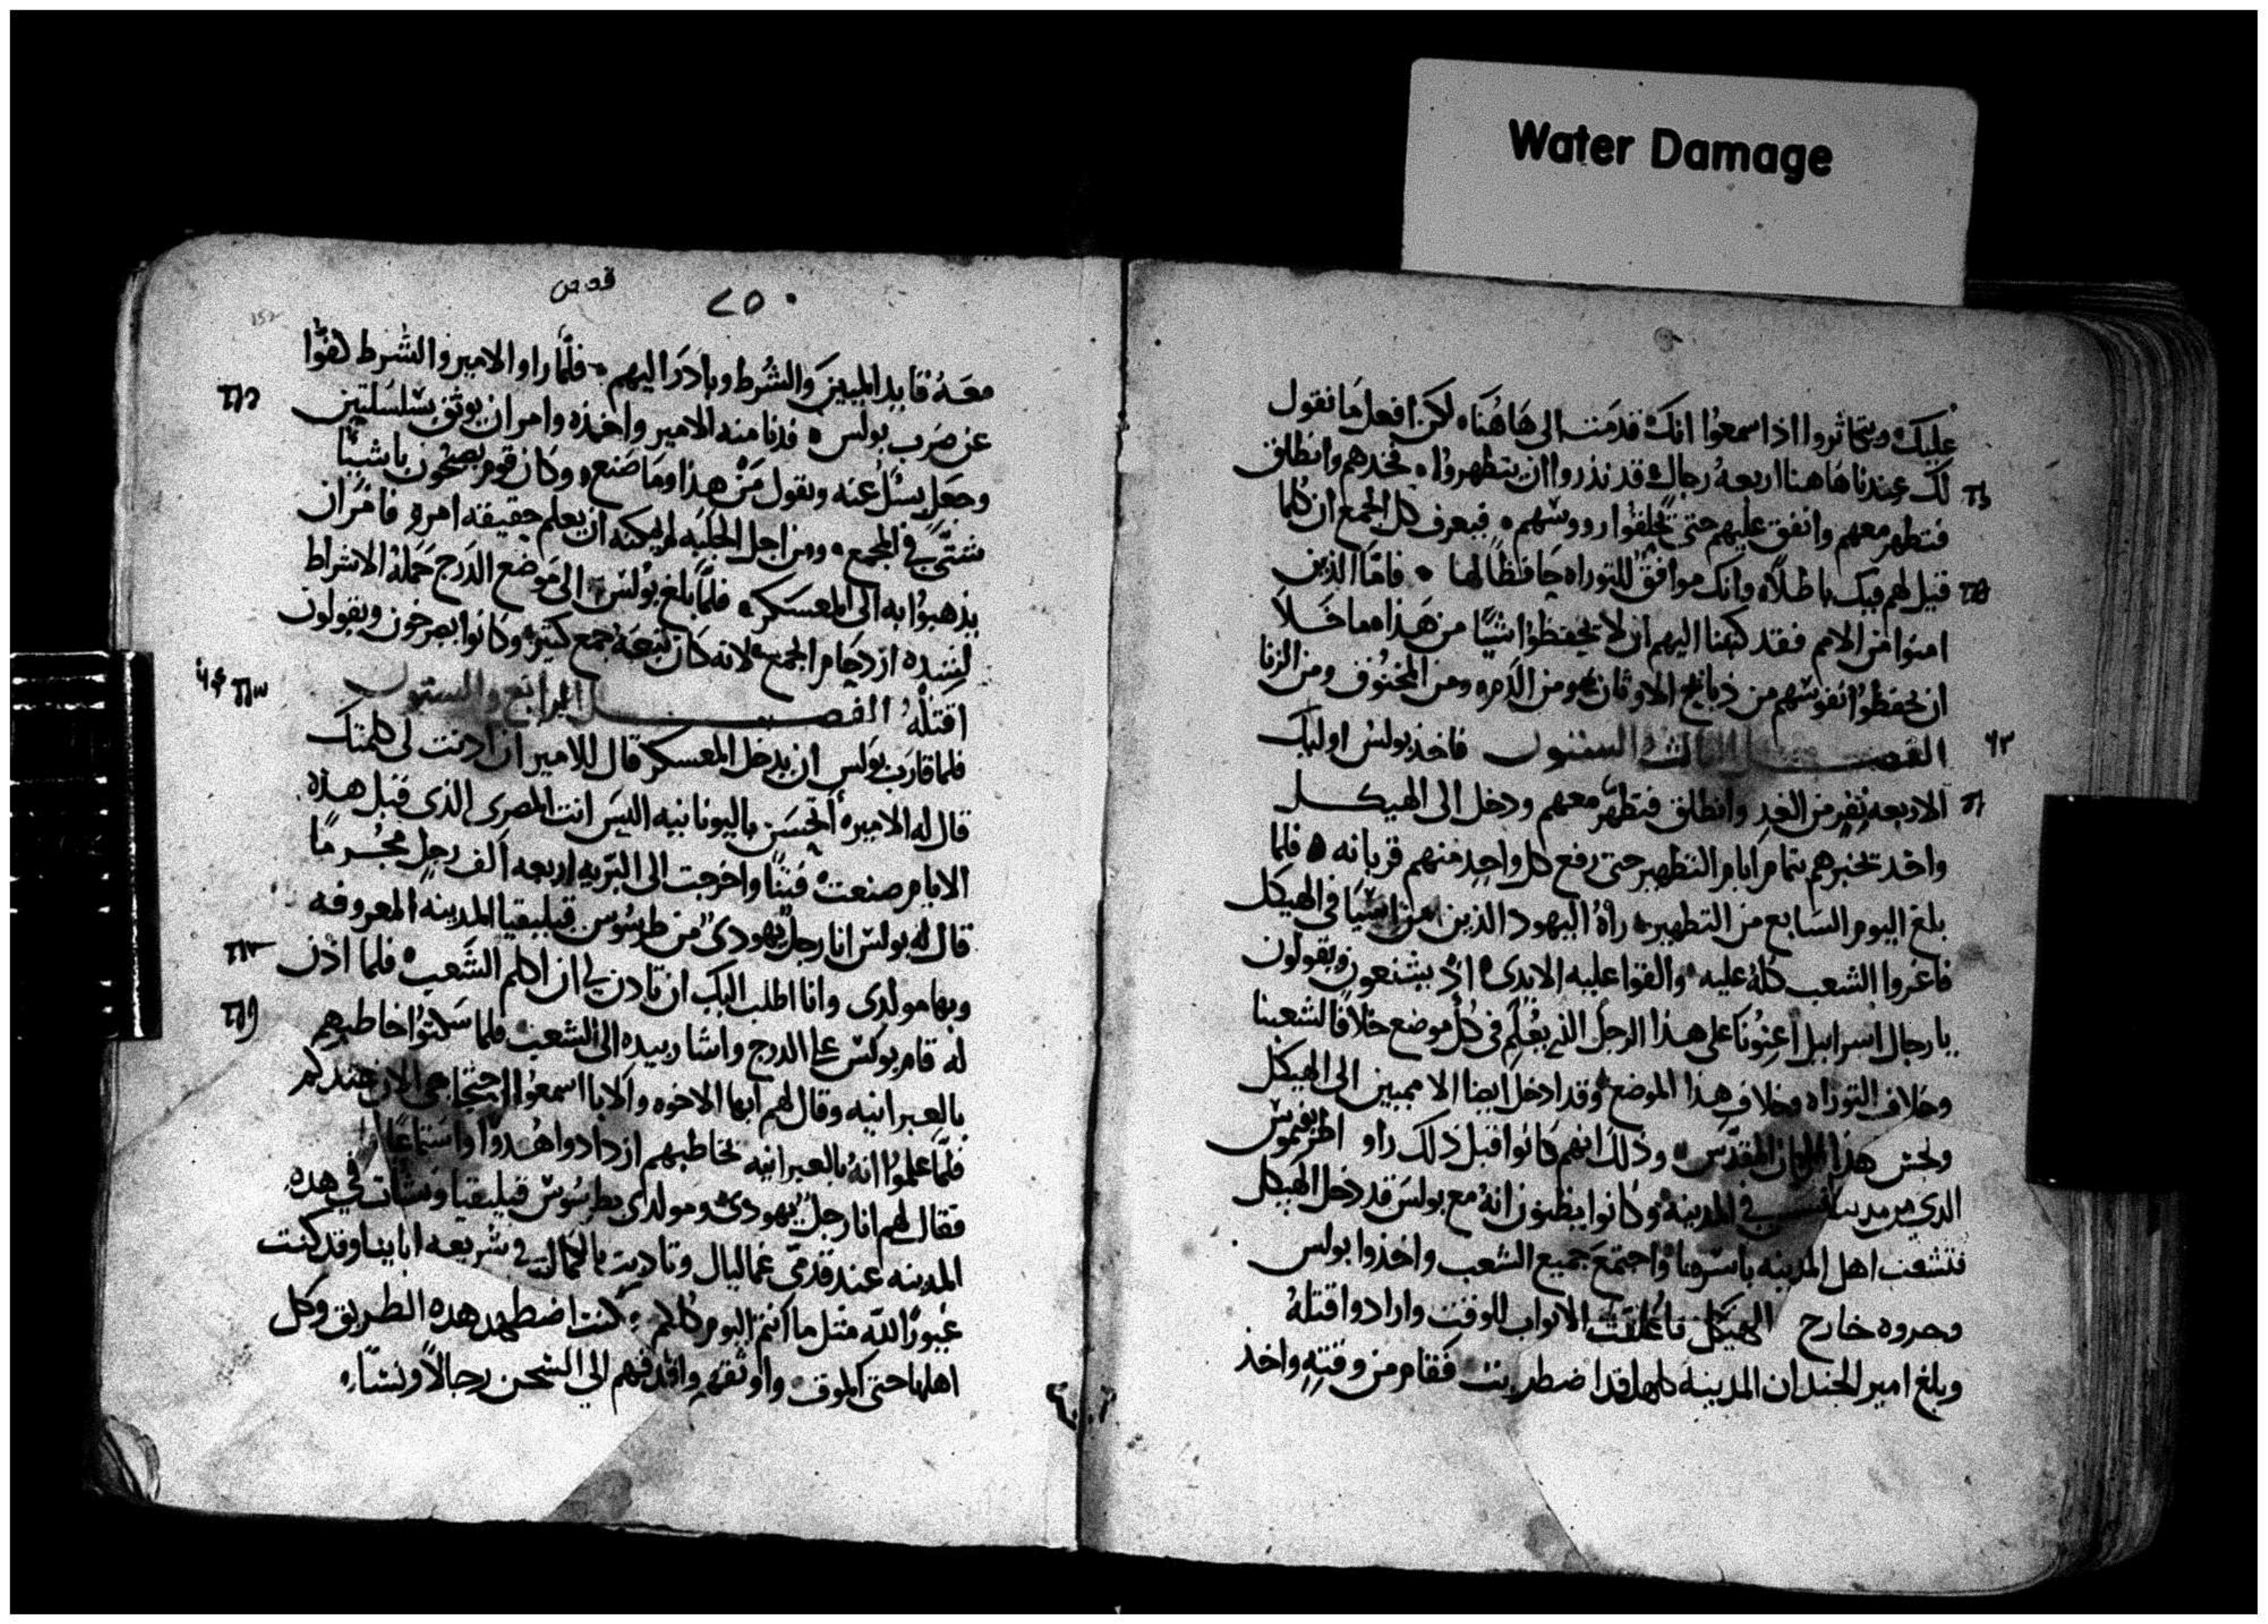 Water Damage
عليك ويتماثروا اذا سمعوا انك قدمت الى هاهنا لكن افعل ما نقول
لك عندنا هاهنا اربعه رجال قد نذروا ان يتطهروا فخدهم وانطلق
فتطهر معهم وانفق عليهم حتى تحلقوا رووسهم فيعرف كل الجمع ان كلما
قيل لهم فيك باطلا وانك موافق للتوراه حافظا لها فاما الذين
امنوا من الامم فقد كتبنا اليهم ان لا يحفظوا شيا من هذا ما خلا
ان يحفظوا نفوسهم من ذبايح الاوثان ومن الدم ومن المخنوق ومن الزنا
الفصل الثالث والستون فاخذ بولس اوليك
٦٣
الاربعه نفر من الغد وانطلق فتطهر معهم ودخل الى الهيكل
واخد تخبرهم بتمام ايام التطهير حتى رفع كل واحد منهم قربانه فلما
بلغ اليوم السابع من التطهير راه اليهود الذين من اسيا في الهيكل
فاغروا الشعب كله عليه والقوا عليه الايدى اذ يشنعون ويقولون
يا رجال اسراييل اعينونا على هذا الرجل الذي يعلم في كل موضع خلافا لشعبنا
وخلاف التوراه وخلاف هذا الموضع وقد ادخل ايضا الامميين الى الهيكل
ونجس هذا المكان المقدس وذلك انهم كانوا قبل ذلك راو اطرفيموس
الذي من مدينة افسس في المدينه وكانوا يظنون انه مع بولس قد دخل الهيكل
فتشعب اهل المدينه باسرها واجتمع جميع الشعب واخذوا بولس
وجروه خارج الهيكل فاغلقت الابواب للوقت وارادوا قتله
وبلغ امير الجند ان المدينه كلها قد اضطربت فقام من وقته واخذ
٢٥٠
152
معه قايد المييين والشرط وبادر اليهم فلما راو الامير والشرط كفوا
عن ضرب بولس فدنا منه الامير واخذه وامر ان يوثق بسلسلتين
وجعل يسئل عنه ويقول من هذا وما صنع وكان قوم يصيحون باشيا
شتى في المجمع ومن اجل الجلبه لم يمكنه ان يعلم حقيقه امره فامر ان
يذهبوا به الى المعسكر فلما بلغ بولس الى موضع الدرج حمله الاشراط
لشده ازدحام الجمع لانه كان يتبعه جمع كثير وكانوا يصرخون ويقولون
اقتله الفصل الرابع والستون
٦٤
فلما قارب بولس ان يدخل المعسكر قال للامير ان اذنت لي كلمتك
قال له الامير اتحسن باليونانيه اليس انت المصرى الذى قبل هذه
الايام صنعت فتنا واخرجت الى البريه اربعه الف رجل مجرما
قال له بولس انا رجل يهودى من طرسوس قيليقيا المدينه المعروفه
وبها مولدى وانا اطلب اليك ان تادن لي ان اكلم الشعب فلما اذن
له قام بولس على الدرج واشار بيده الى الشعب فلما سكتوا خاطبهم
بالعبرانيه وقال لهم ايها الاخوه والابا اسمعوا احتجاجى الان عندكم
فلما علموا انه بالعبرانيه يخاطبهم ازدادوا هدوا واستماعا
فقال لهم انا رجل يهودى ومولدى بطرسوس قيليقيا ونشات في هده
المدينه عند قدمى غماليال وتاديت بالكمال في شريعه اباينا وقد كنت
غيورا لله مثل ما انتم اليوم كلكم كنت اضطهد هده الطريق وكل
اهلها حتى الموت واوثقهم واقدفهم الى السجن رجالا ونسا